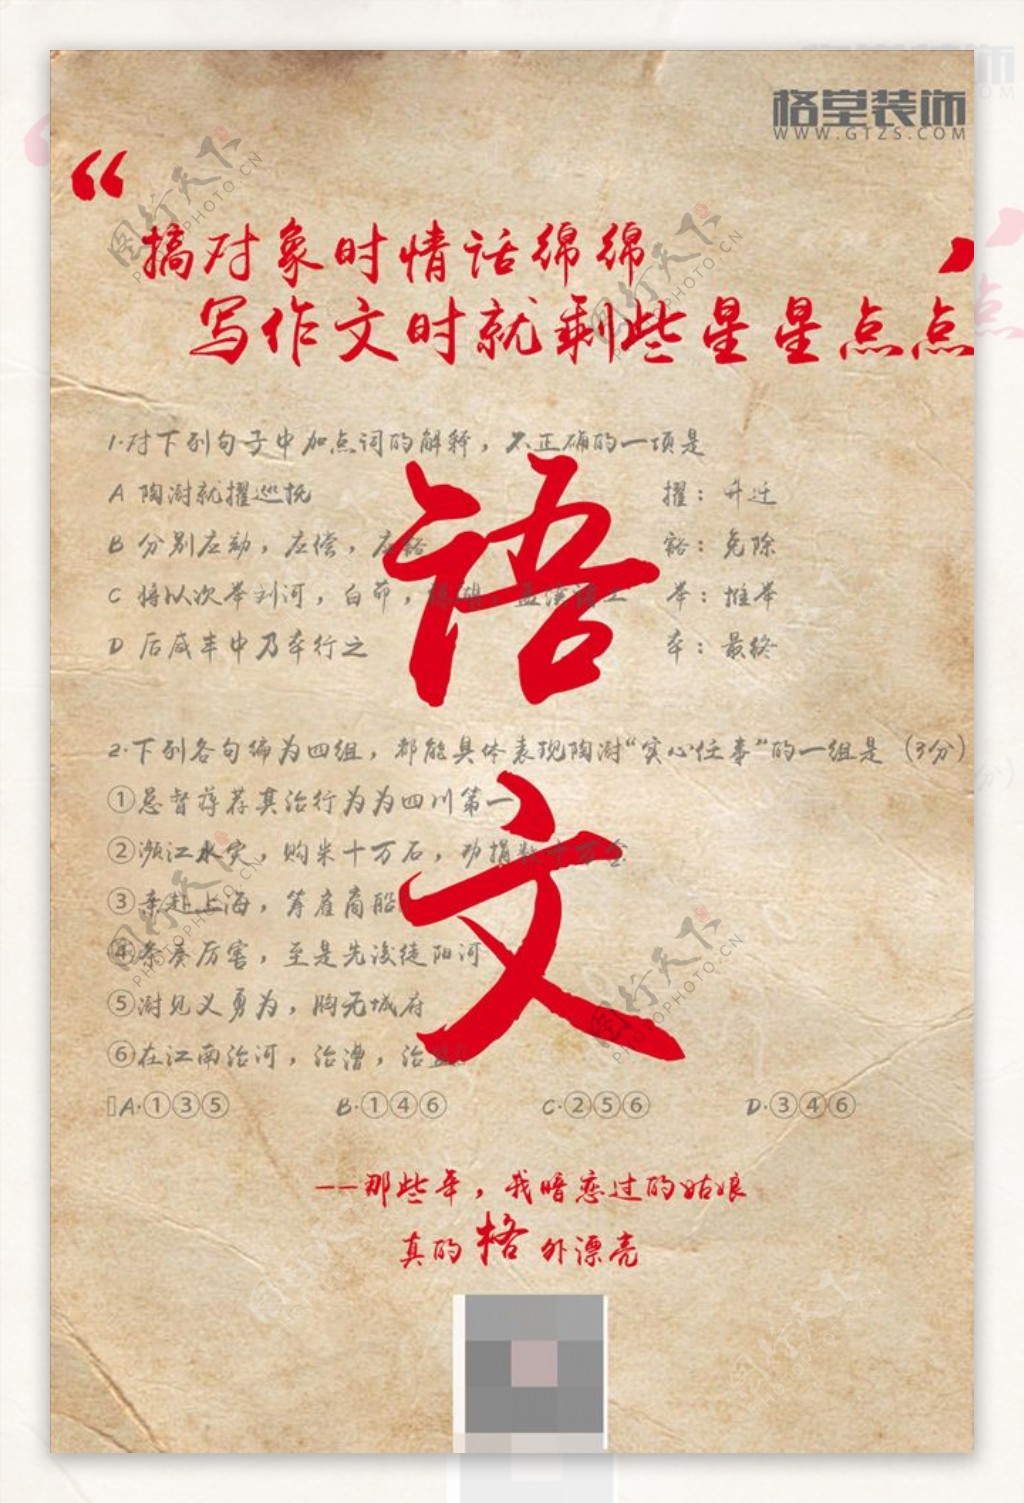 格堂装饰
WWW.GTZS.COM
“
搞对象时情话绵绵
写作文时就剩些星星点点
1·对下列句子中加点词的解释，不正确的一项是
A 陶澍就擢巡抚 擢：升迁
B 分别应劾，应偿，应豁 豁：免除
C 将以次举刘河，白茆， 举：推举
D 后咸丰中乃卒行之 卒：最终
语
文
2·下列各句编为四组，都能具体表现陶澍“实心任事”的一组是（3分）
①总督蒋荐其治行为为四川第一
②濒江水灾，购米十万石，劝捐数十万金
③亲赴上海，筹雇商船
④条奏厉害，至是先浚徒阳河
⑤澍见义勇为，胸无城府
⑥在江南治河，治漕，治盐
A·①③⑤ B·①④⑥ C·②⑤⑥ D·③④⑥
--那些年，我暗恋过的姑娘
真的格外漂亮